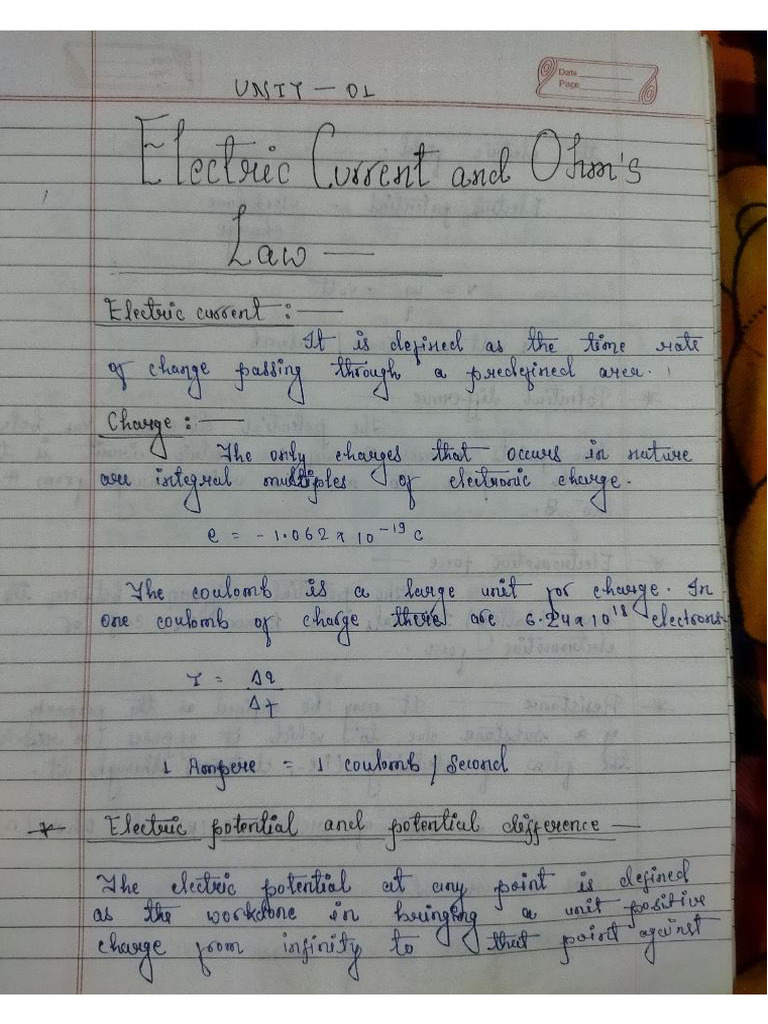 UNIT - 01
Date
Page
Electric Current and Ohm's
Law —
Electric current :—
It is defined as the time rate
of change passing through a predefined area.
Charge :—
The only charges that occurs in nature
are integral multiples of electronic charge.
e = -1.062 x 10⁻¹⁹ C
The coulomb is a large unit for charge. In
one coulomb of charge there are 6.24 x 10¹⁸ electrons.
I = Δq
Δt
1 Ampere = 1 coulomb / Second
* Electric potential and potential difference —
The electric potential at any point is defined
as the workdone in bringing a unit positive
charge from infinity to that point against